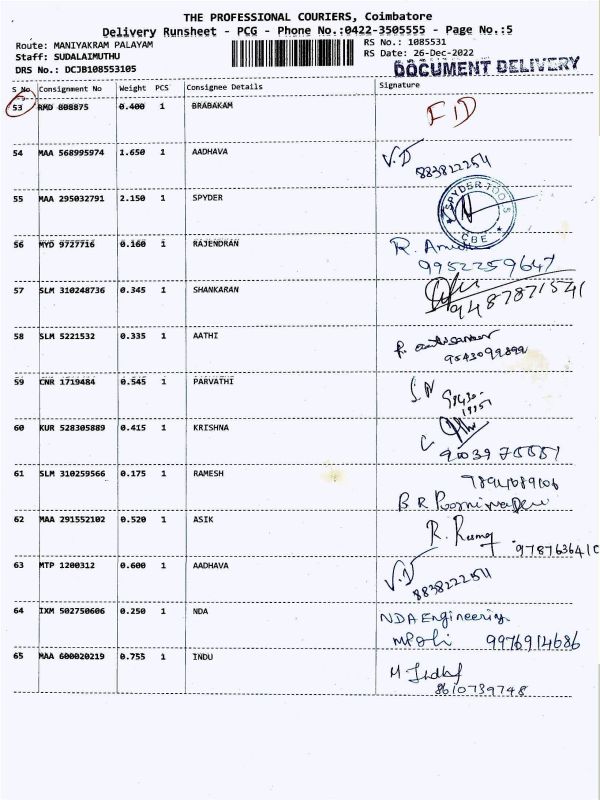 THE PROFESSIONAL COURIERS, Coimbatore
Delivery Runsheet - PCG - Phone No.:0422-3505555 - Page No.:5
Route: MANIYAKRAM PALAYAM
Staff: SUDALAIMUTHU
DRS No.: DCJB108553105
RS No.: 1085531
RS Date: 26-Dec-2022
DOCUMENT DELIVERY
S No Consignment No Weight PCS Consignee Details Signature
53 RMD 808875 0.400 1 BRABAKAM
54 MAA 568995974 1.650 1 AADHAVA V.D
8838222511
55 MAA 295032791 2.150 1 SPYDER SPYDER TOOLS CBE
56 MYD 9727716 0.160 1 RAJENDRAN R.
9952259647
57 SLM 310248736 0.345 1 SHANKARAN
9487871541
58 SLM 5221532 0.335 1 AATHI
9543099899
59 CNR 1719484 0.545 1 PARVATHI S.N
60 KUR 528305889 0.415 1 KRISHNA
61 SLM 310259566 0.175 1 RAMESH
B R
62 MAA 291552102 0.520 1 ASIK R.
63 MTP 1200312 0.600 1 AADHAVA V.D
8838222511
64 IXM 502750606 0.250 1 NDA NDA Engineering
9976914686
65 MAA 600020219 0.755 1 INDU M
8610739748